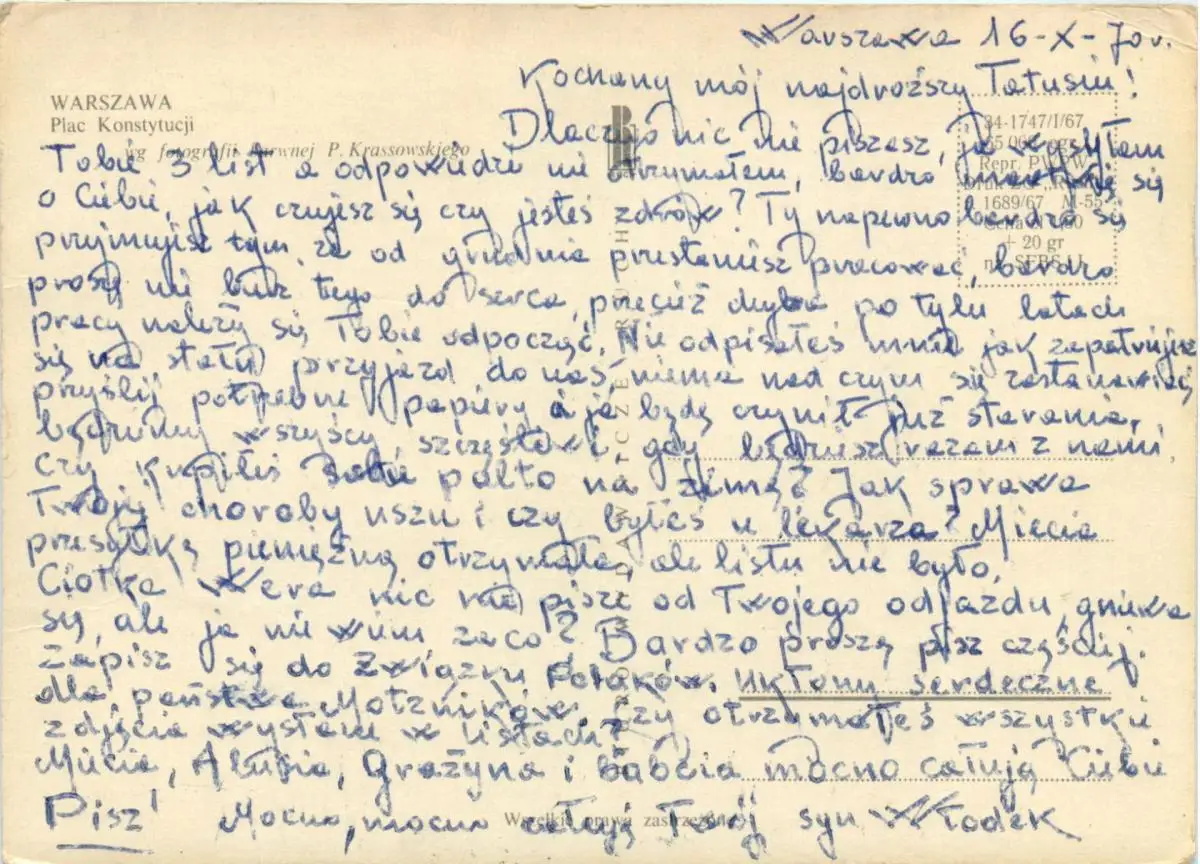 Warszawa 16-X-70r.
Kochany mój najdroższy Tatusiu!
WARSZAWA
Plac Konstytucji
wg fotografii barwnej P. Krassowskiego
34-1747/I/67
Repr. PWPW
1689/67 M-55
+ 20 gr
Dlaczego nic nie piszesz, ja wysyłam
Tobie 3 list a odpowiedzi nie otrzymałem, bardzo martwię się
o Ciebie, jak czujesz się czy jesteś zdrów? Ty napewno bardzo się
przyjmujesz tym, że od grudnia przestaniesz pracować, bardzo
proszę nie bierz tego do serca, przecież chyba po tylu latach
pracy należy się Tobie odpocząć. Nie odpisałeś mnie jak zapatrujesz
się na stały przyjazd do nas, niema nad czym się zastanawiać,
pryślij potrzebne papiery a ja będę czynił już starania,
będziemy wszyscy szczęśliwi gdy będziesz razem z nami.
Czy kupiłeś sobie palto na zimę? Jak sprawa
Twojej choroby uszu i czy byłeś u lekarza? Miecia
przesyłkę pieniężną otrzymała, ale listu nie było.
Ciotka Wera nic nie pisze od Twojego odjazdu, gniewa
się, ale ja nie wiem zaco? Bardzo proszę pisz częściej.
Zapisz się do Związku Polaków. Ukłony serdeczne
dla państwa Czy otrzymałeś wszystkie
zdjęcia wysłane w listach?
Miecia, Alusia, Grażyna i babcia mocno całują Ciebie
Pisz! Mocno, mocno całuję Twój syn Włodek
Wszelkie prawa zastrzeżone